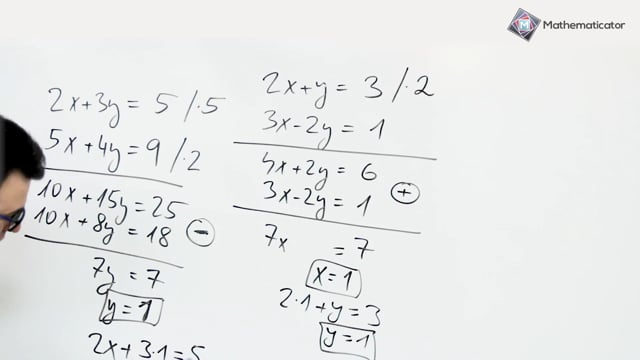 Mathematicator
2x+3y= 5 /·5
5x+4y= 9 /·2
10x+15y=25
10x+8y=18 −
7y = 7
y=1
2x+3·1=5
2x+y= 3 /·2
3x-2y= 1
4x+2y= 6
3x-2y= 1 +
7x = 7
x=1
2·1+y=3
y=1